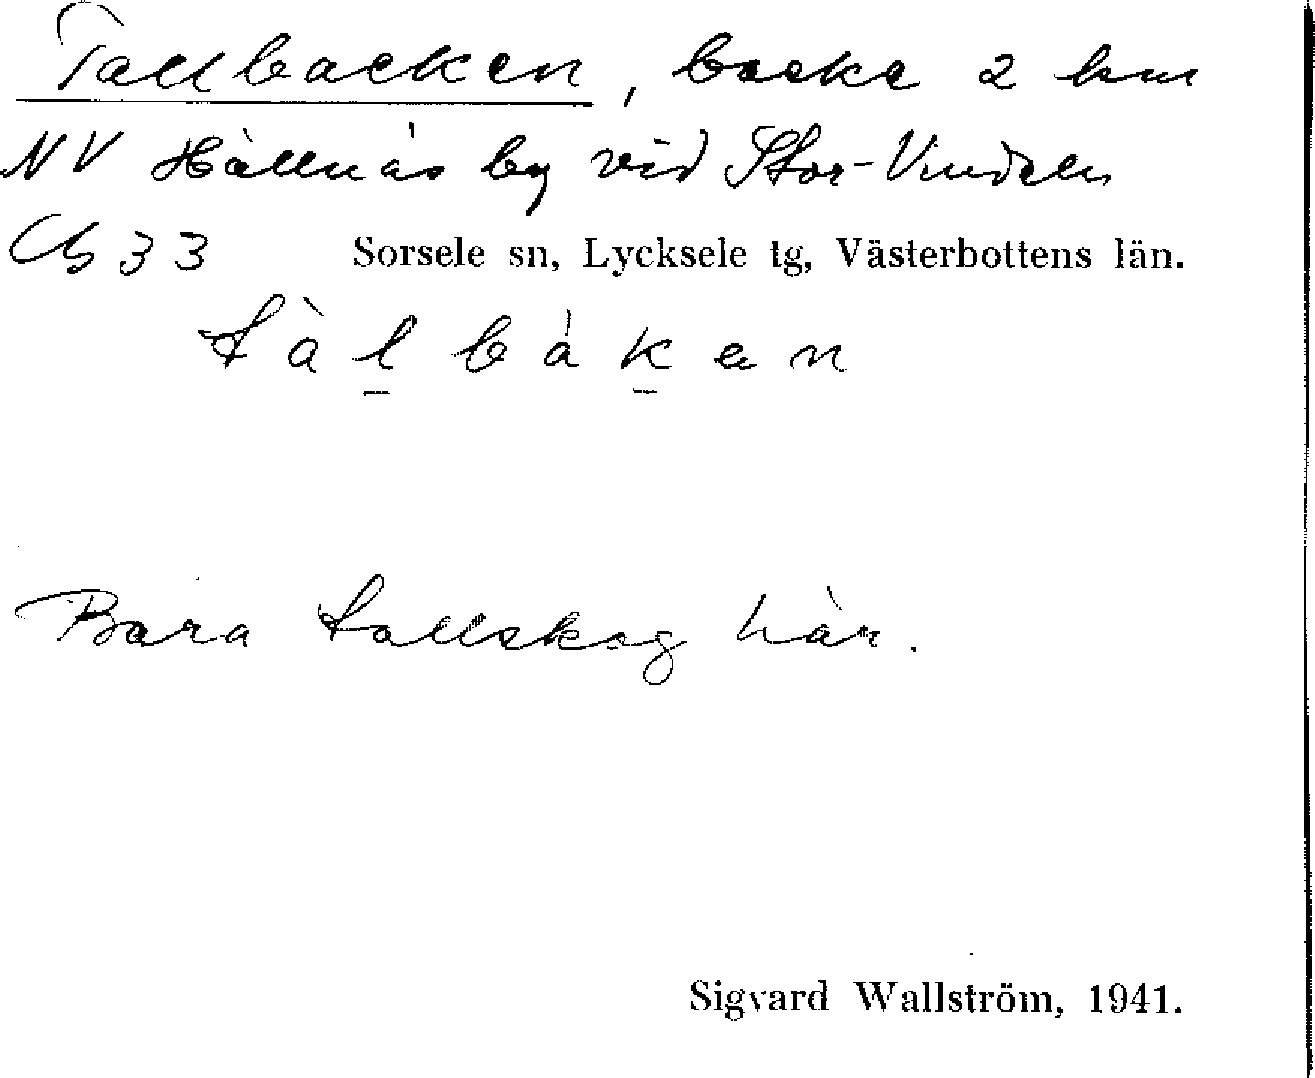 Tallbacken, backe 2 km
NV Hällnäs by vid Stor-Vindeln
Cb 33 Sorsele sn, Lycksele tg, Västerbottens län.
tàl̲bák̲en
Bara tallskog här.
Sigvard Wallström, 1941.